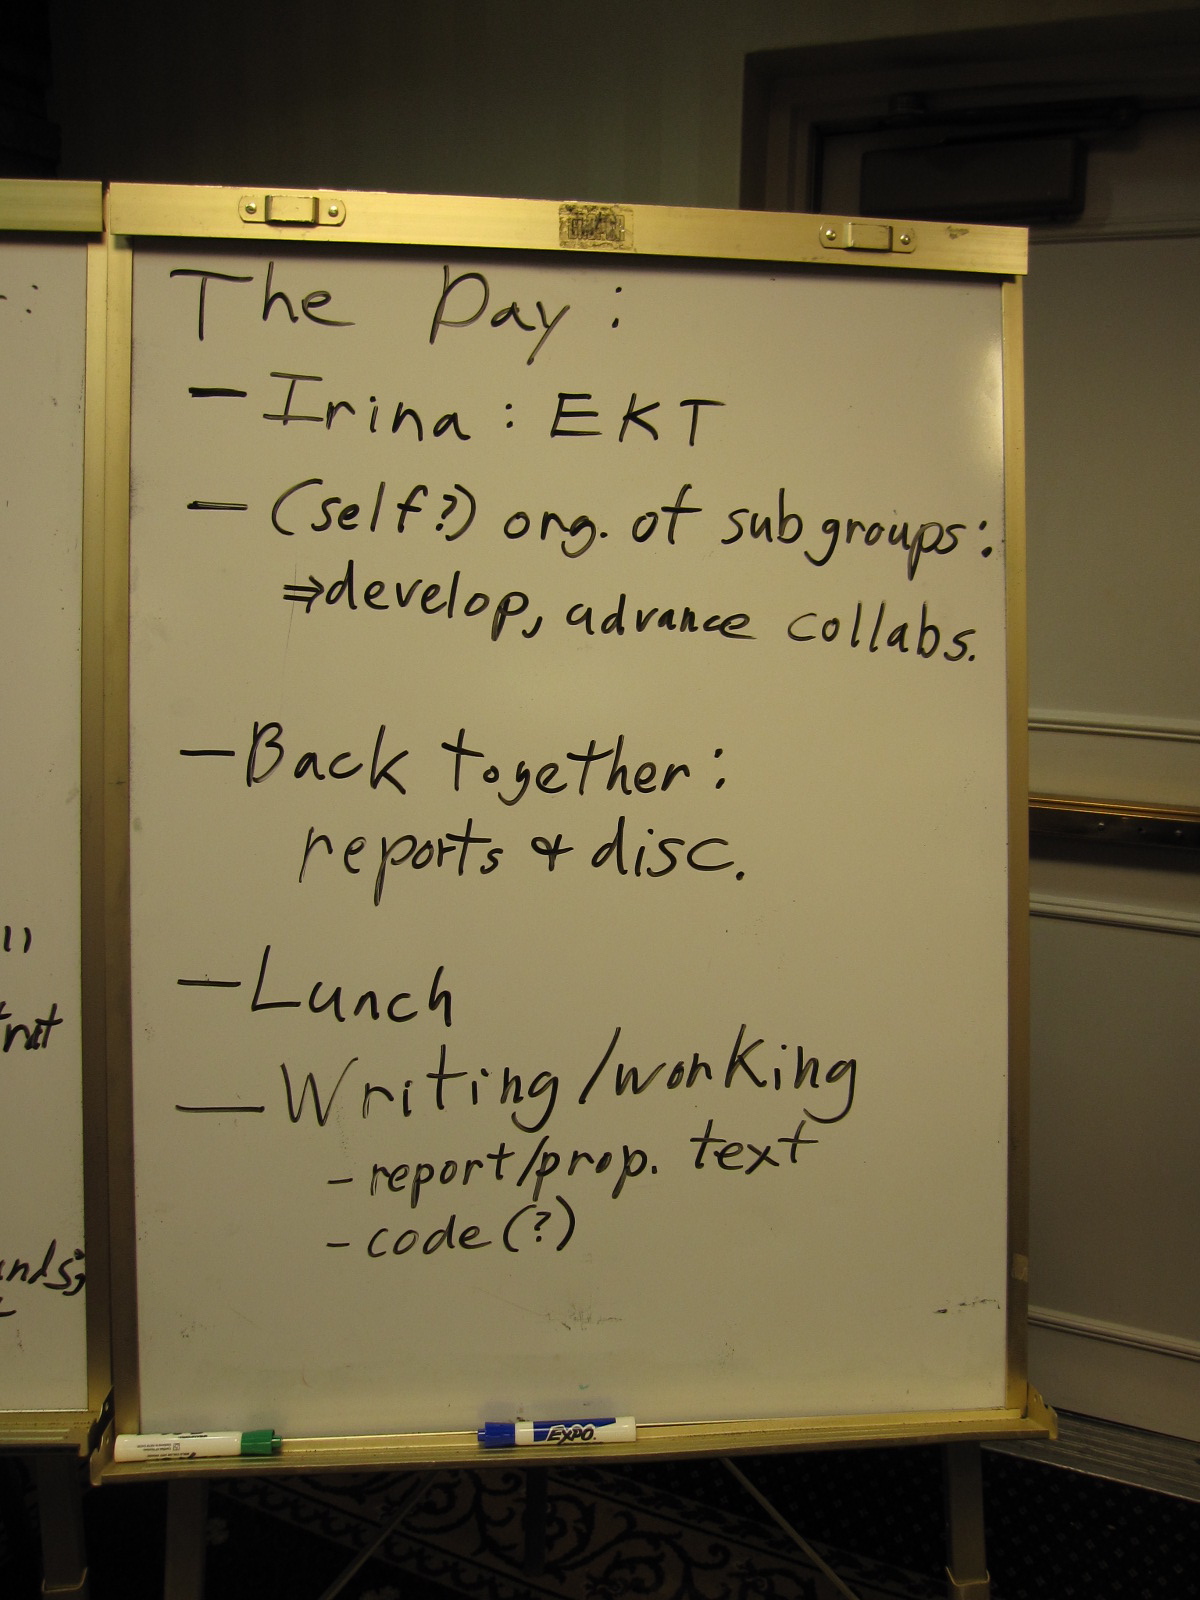 The Day:
— Irina: EKT
— (self?) org. of subgroups:
⇒develop, advance collabs.
— Back together:
reports & disc.
— Lunch
— Writing/working
- report/prop. text
- code(?)
EXPO.